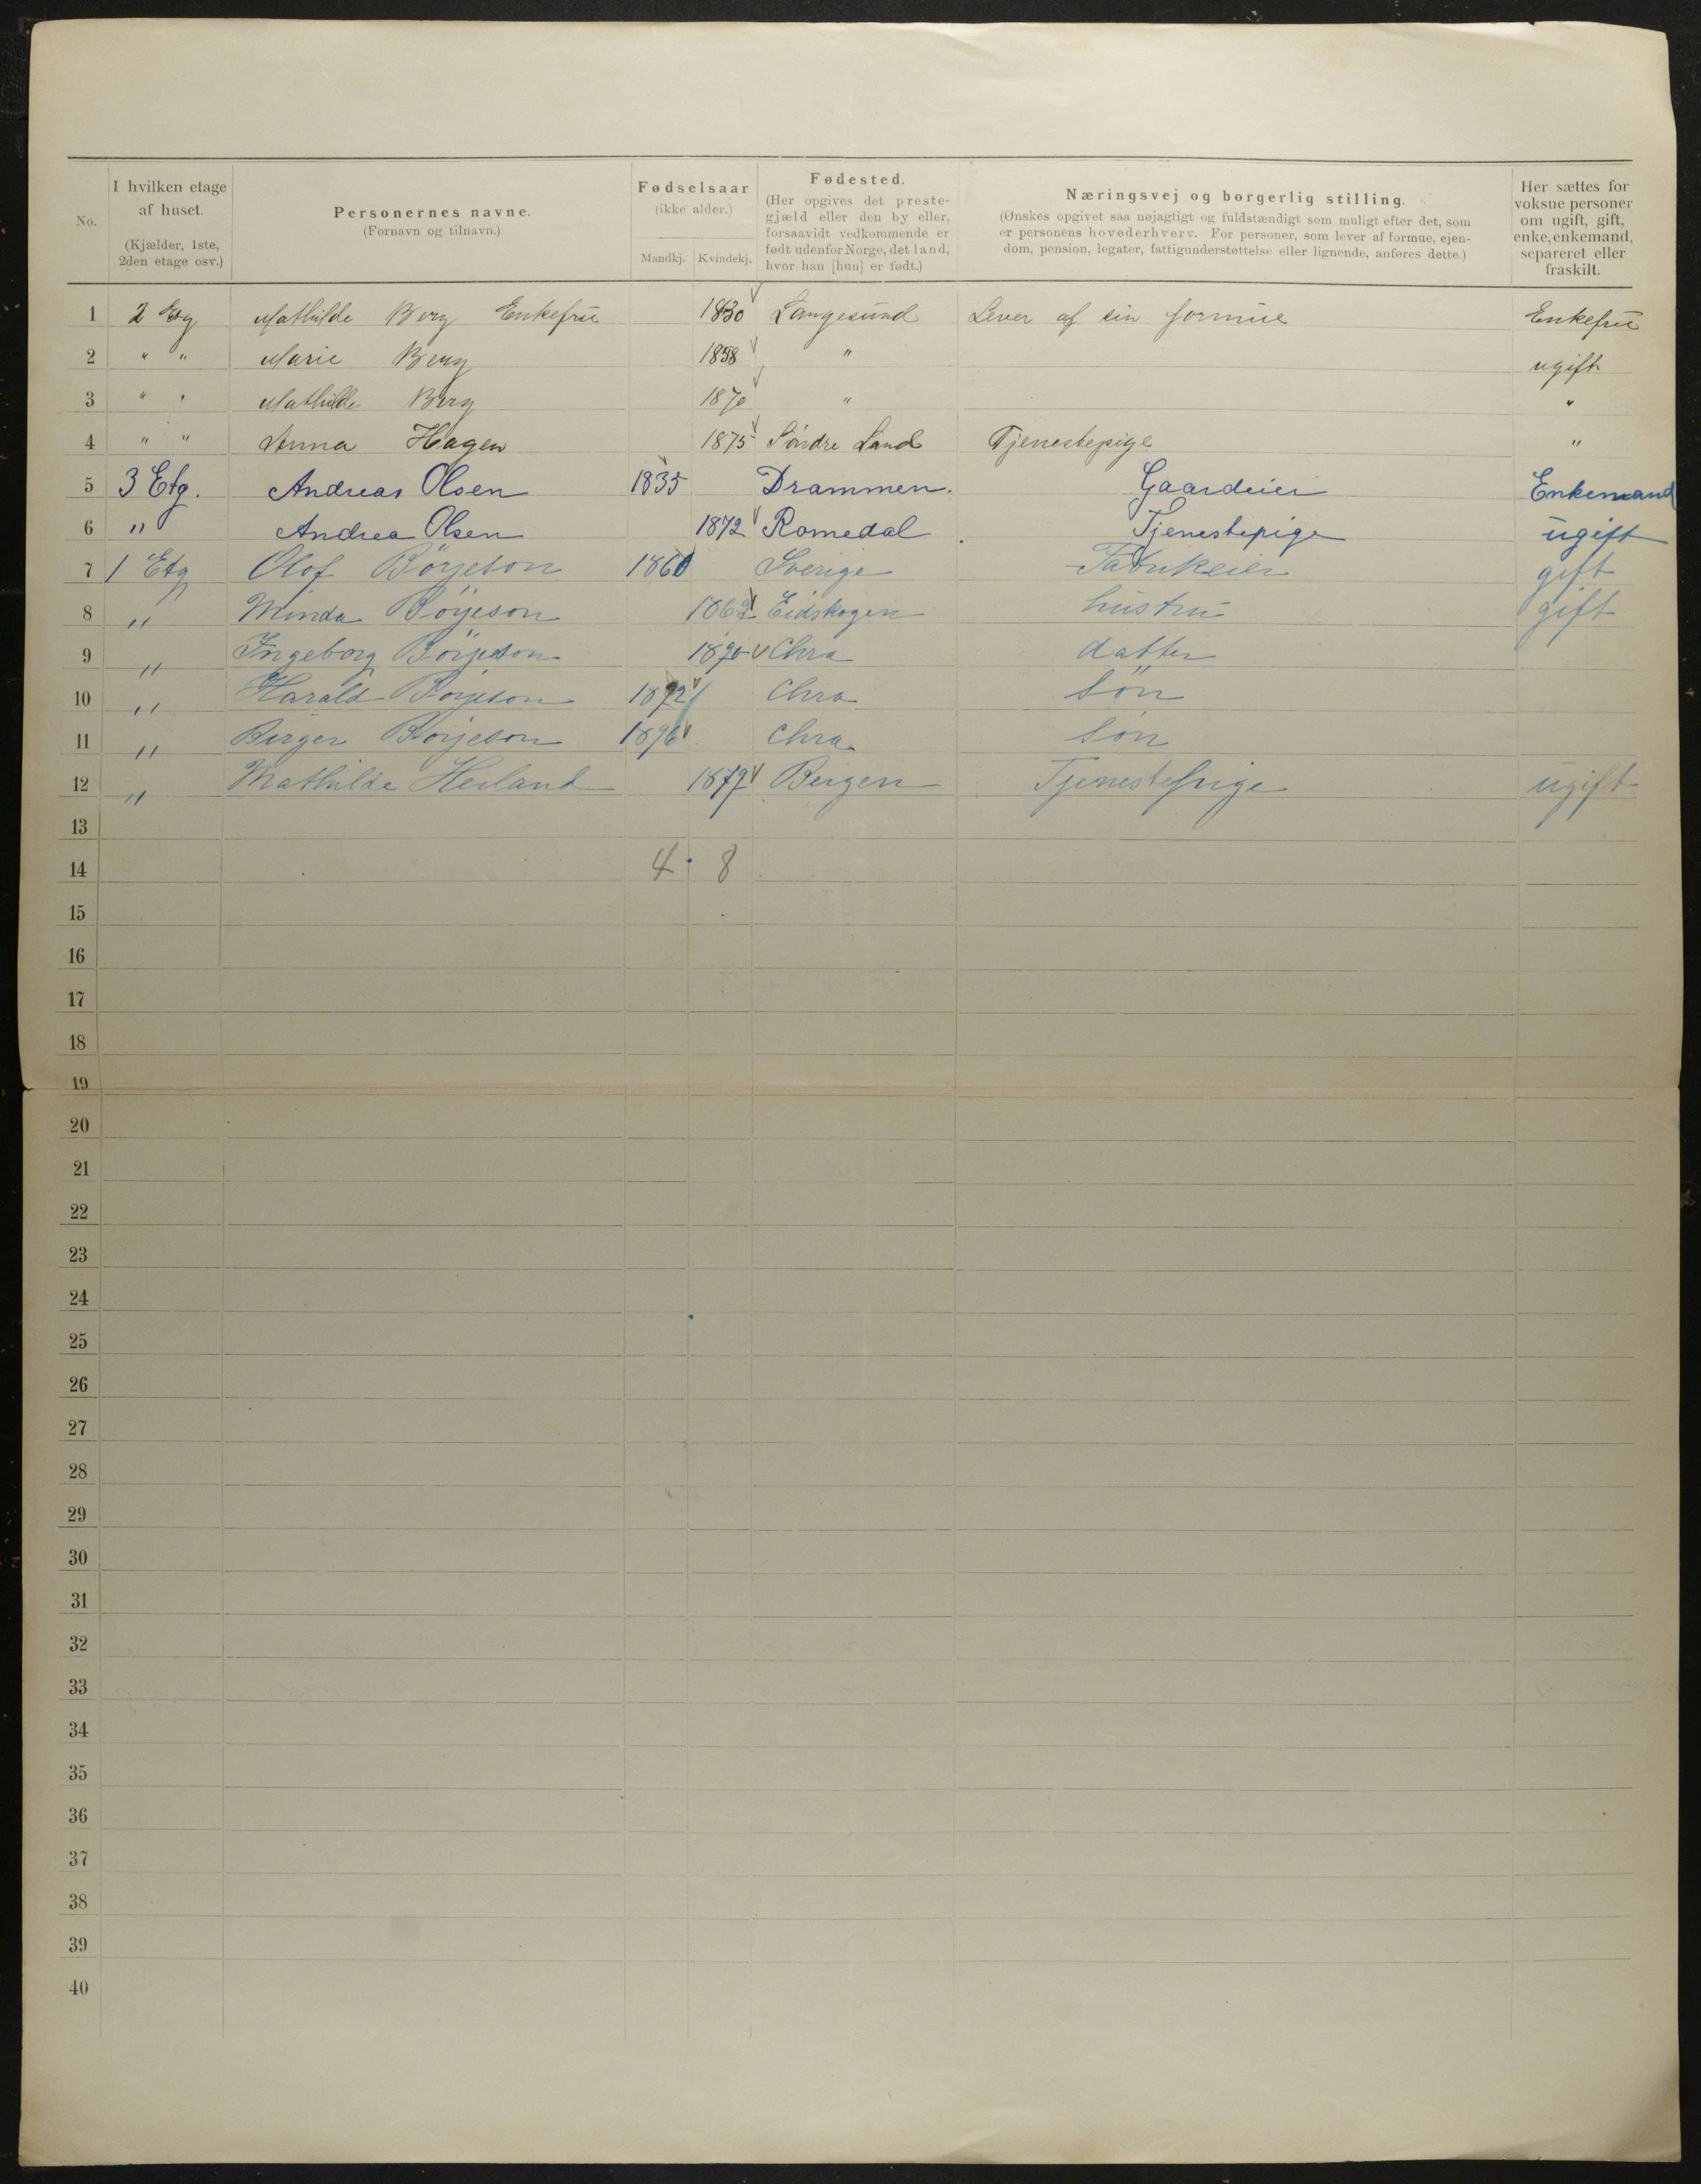 No.
I hvilken etage af huset. (Kjælder, 1ste, 2den etage osv.)
Personernes navne. (Fornavn og tilnavn.)
Fødselsaar (ikke alder.)
Mandkj. Kvindekj.
Fødested. (Her opgives det prestegjæld eller den by eller, forsaavidt vedkommende er født udenfor Norge, det land, hvor han [hun] er født.)
Næringsvej og borgerlig stilling. (Ønskes opgivet saa nøjagtigt og fuldstændigt som muligt efter det, som er personens hovederhverv. For personer, som lever af formue, ejendom, pension, legater, fattigunderstøttelse eller lignende, anføres dette.)
Her sættes for voksne personer om ugift, gift, enke, enkemand, separeret eller fraskilt.
1 2 Etg Mathilde Berg Enkefrue 1830 Langesund Lever af sin formue Enkefrue
2 " " Marie Berg 1858 " ugift
3 " " Mathilde Berg 1870 " "
4 " " Anna Hagen 1875 Søndre Land Tjenestepige "
5 3 Etg. Andreas Olsen 1835 Drammen. Gaardeier Enkemand
6 " Andrea Olsen 1872 Romedal Tjenestepige ugift
7 1 Etg Olof Börjeson 1860 Sverige Fabrikeier gift
8 " Minda Börjeson 1862 Eidskogen hustru gift
9 " Ingeborg Börjeson Chra datter
10 " Harald Börjeson Chra sön
11 " Birger Börjeson 1896 Chra sön
12 " Mathilde Heiland Bergen Tjenestepige ugift
13
14 4 8
15
16
17
18
19
20
21
22
23
24
25
26
27
28
29
30
31
32
33
34
35
36
37
38
39
40